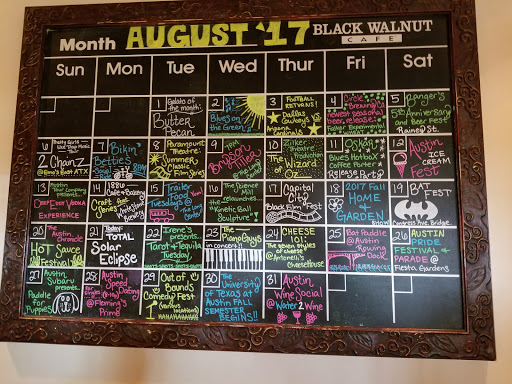 Month AUGUST '17 BLACK WALNUT
CAFE
Sun Mon Tue Wed Thur Fri Sat
1 Gelato of
the month:
Butter
Pecan
2
Blues on
the Green
3 FOOTBALL
RETURNS!
Dallas
Cowboys
vs
Arizona
Cardinals
4 Circle
Brewing's
newest seasonal
beer release
5 Banger's
5th
Anniversary
and Beer Fest
Rainey St.
6
2 Chainz
@ Emo's East ATX
7
Bikin'
Betties
Social
8 PARAMOUNT
THEATRE:
Summer
Classic
Film Series
9
Bryson
Tiller
10 Zilker
Theatre
Production
of The
Wizard of
Oz
11
Oskar
Blues HotBox
Coffee Porter
Release Party
12
Austin
ICE
CREAM
Fest
13
DEEP EDDY VODKA
EXPERIENCE
14 1886
Café & Bakery
Craft Beer
Series
15
Trailer
Food
Tuesdays
@ the Long Center
16 The Science
Mill
relaunches...
the
"Kinetic Ball
Sculpture"
17
Capital
City
Black Film Fest
18
2017 Fall
HOME
&
GARDEN
Show
19 BAT
FEST
Congress Ave Bridge
20 The Austin
Chronicle
HOT SAUCE
Festival
21 Today!
TOTAL
Solar
Eclipse
22 Irene's
presents...
Tarot + Tequila
Tuesday
23 THE
PIANO GUYS
in concert!!
24 CHEESE
101:
The seven styles
of cheese
@ Antonelli's
Cheese House
25
Bat Paddle
@ Austin
Rowing
Dock
26 AUSTIN
PRIDE
FESTIVAL +
PARADE
@
Fiesta Gardens
27 Austin
Subaru
presents...
Paddle for
Puppies
28 Austin
Speed
Dating
@ Fleming's
Prime
29 Out of
Bounds
Comedy Fest
(various
locations)
HAHAHAHAHAHA
30 The
University
of Texas at
AUSTIN FALL
SEMESTER
BEGINS!!
31
Austin
Wine Social
@ Water 2 Wine